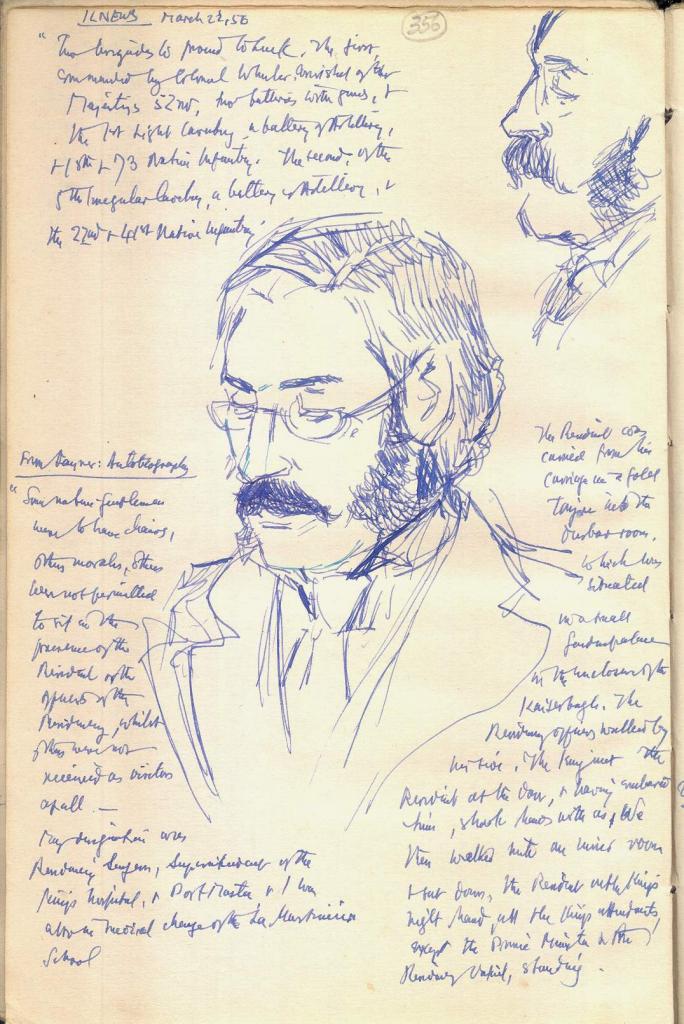 ILNEWS March 22, 56
356
"Two brigades to proceed to Luck. The first,
commanded by Colonal Wheeler consisted of Her
Majestys 52nd, two batteries with guns, +
the 1st Light Cavalry, a battery of Artillery,
+ 18th + 73 Native Infantry. The second, of the
5th Irregular Cavalry, a battery of Artillery, +
the 22nd + 41st Native Infantry."
From Fayrer: Autobiography
"Some native gentlemen
were to have chairs,
others morahs, others
were not permitted
to sit in the
presence of the
Resident or the
officers of the
Residency, whilst
others were not
received as visitors
at all. —
My designation was
Residency Surgeon, Superintendent of the
King's Hospital, + Post Master + I was
also in medical charge of the La Martiniere
School
The Resident was
carried from his
carriage in a
into the
Durbar room,
which was
situated
in a small
garden palace
in the enclosure of the
Kaiserbagh. The
Residency officers walked by
his side. The King met the
Resident at the door, + having embraced
him, shook hands with us, + We
then walked into an inner room
+ sat down, the Resident on the King's
right hand, all the King's attendants,
except the Prime Minister + the
Residency Vakil, standing.